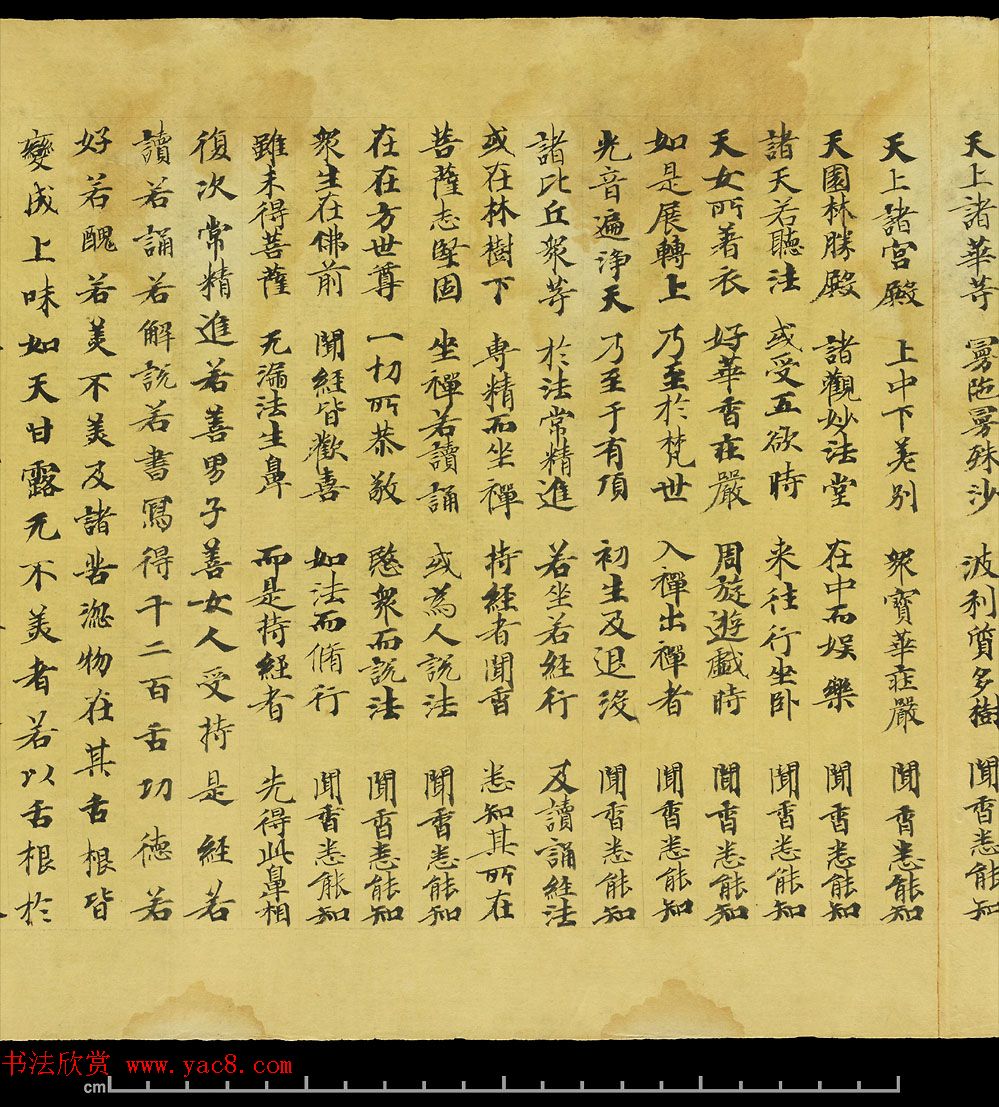 天上諸華等 曼陁曼殊沙 波利質多樹 聞香悉能知
天上諸宮殿 上中下差別 衆寶華莊嚴 聞香悉能知
天園林勝殿 諸觀妙法堂 在中而娛樂 聞香悉能知
諸天若聽法 或受五欲時 来往行坐卧 聞香悉能知
天女所著衣 好華香莊嚴 周旋遊戲時 聞香悉能知
如是展轉上 乃至於梵世 入禪出禪者 聞香悉能知
光音遍淨天 乃至于有頂 初生及退没 聞香悉能知
諸比丘衆等 於法常精進 若坐若經行 及讀誦經法
或在林樹下 專精而坐禪 持經者聞香 悉知其所在
菩薩志堅固 坐禪若讀誦 或為人說法 聞香悉能知
在在方世尊 一切所恭敬 愍衆而說法 聞香悉能知
衆生在佛前 聞經皆歡喜 如法而脩行 聞香悉能知
雖未得菩薩 无漏法生鼻 而是持經者 先得此鼻相
復次常精進若善男子善女人受持是經若
讀若誦若解說若書寫得千二百舌功德若
好若醜若美不美及諸苦澁物在其舌根皆
變成上味如天甘露无不美者若以舌根於
书法欣赏 www.yac8.com
cm